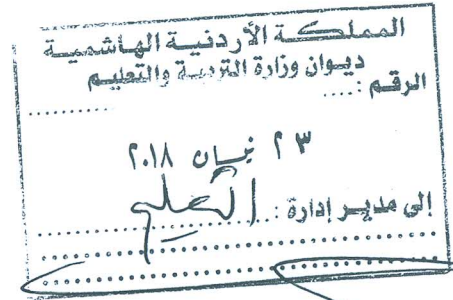 المملكة الأردنية الهاشمية
ديوان وزارة التربية والتعليم
الرقم :
٢٣ نيسان ٢٠١٨
إلى مدير إدارة :